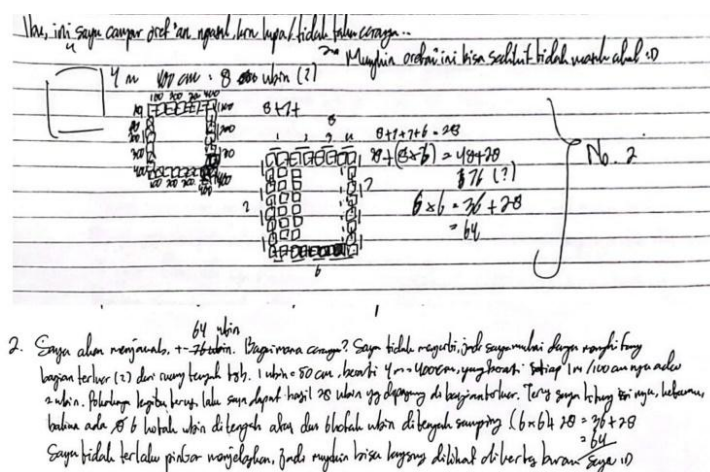 Ibu, ini saya campur oret²an ngasal, krn lupa/tidak tahu caranya..
Mungkin oretan ini bisa sedikit tidak masuk akal :D
4 m 400 cm = 8 ubin (?)
100 200 300 400
100
200
300
400
100 200 300 400
8+7+
8
1 2 3 4
8+7+7+6 = 28
28+(8×6) = 48+28
= 76 (?)
6 × 6 = 36 + 28
= 64
7
7
6
No. 2
64 ubin
2. Saya akan menjawab, +- 76 ubin. Bagaimana caranya? Saya tidak mengerti, jadi saya mulai dengan menghitung
bagian terluar (?) dari ruang tengah tsb. 1 ubin = 50 cm, berarti 4 m = 400 cm, yang berarti setiap 1 m / 100 cm nya ada
2 ubin. begitu terus, lalu saya dapat hasil 28 ubin yg dipasang di bagian terluar. Terus saya hitung isi nya,
ada 6 kotak ubin di tengah atas dan 6 kotak ubin di tengah samping (6×6) + 28 = 36 + 28
= 64
Saya tidak terlalu pintar menjelaskan, jadi mungkin bisa langsung dilihat di kertas buram saya :D